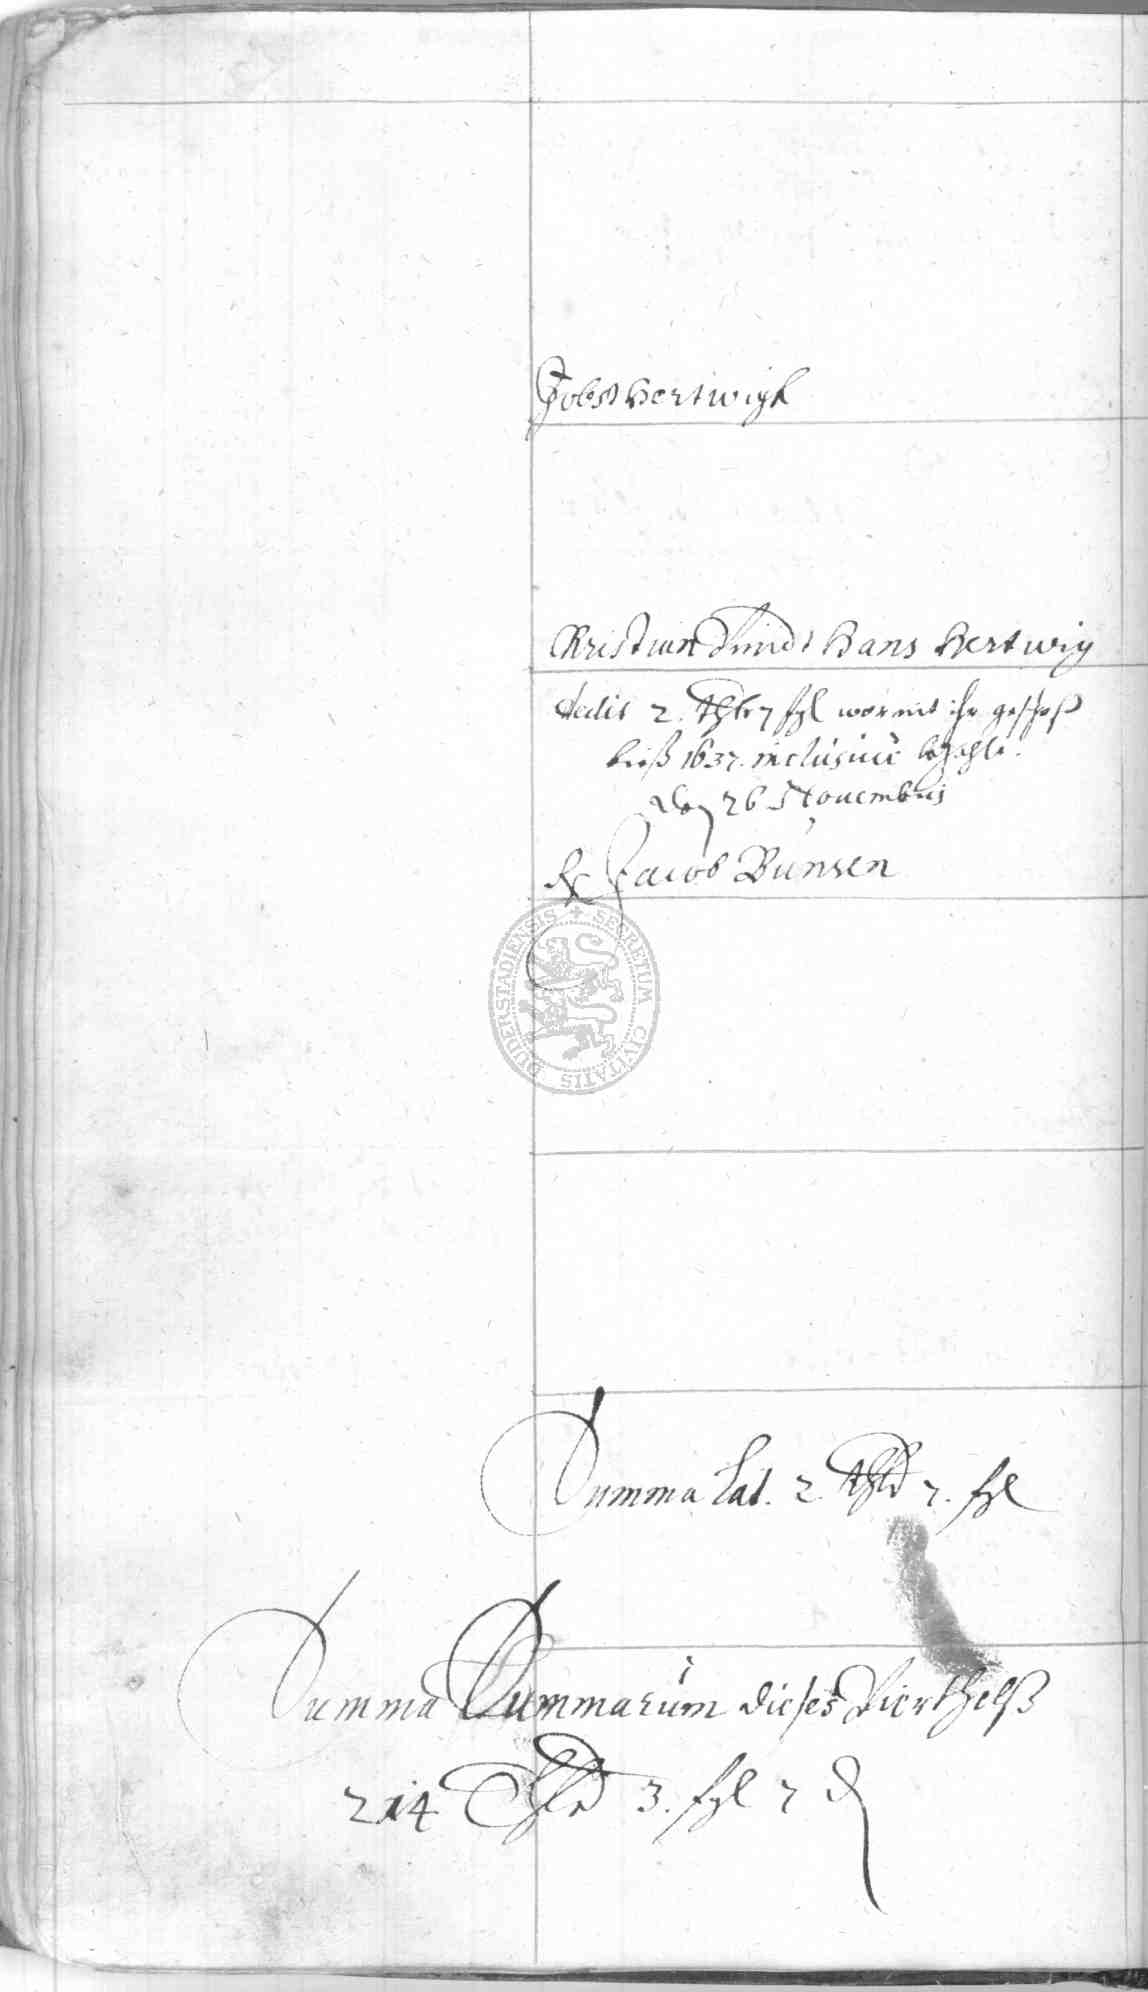 Jobst Hertwigk
Christian Vundt Hans Hertwig
dedit 2. thlr 7 ßgl wormit ihr geschoß
bieß 1637. inclusiué bezahlt.
den 26 Nouembris
Jacob Bunsen
DUDERSTADIENSIS + SECRETUM CIVITATIS
Summa Lat. 2. thlr 7. ßgl
Summa Summarum dieses Vierthelß
214 Thlr 3. ßgl 7 d